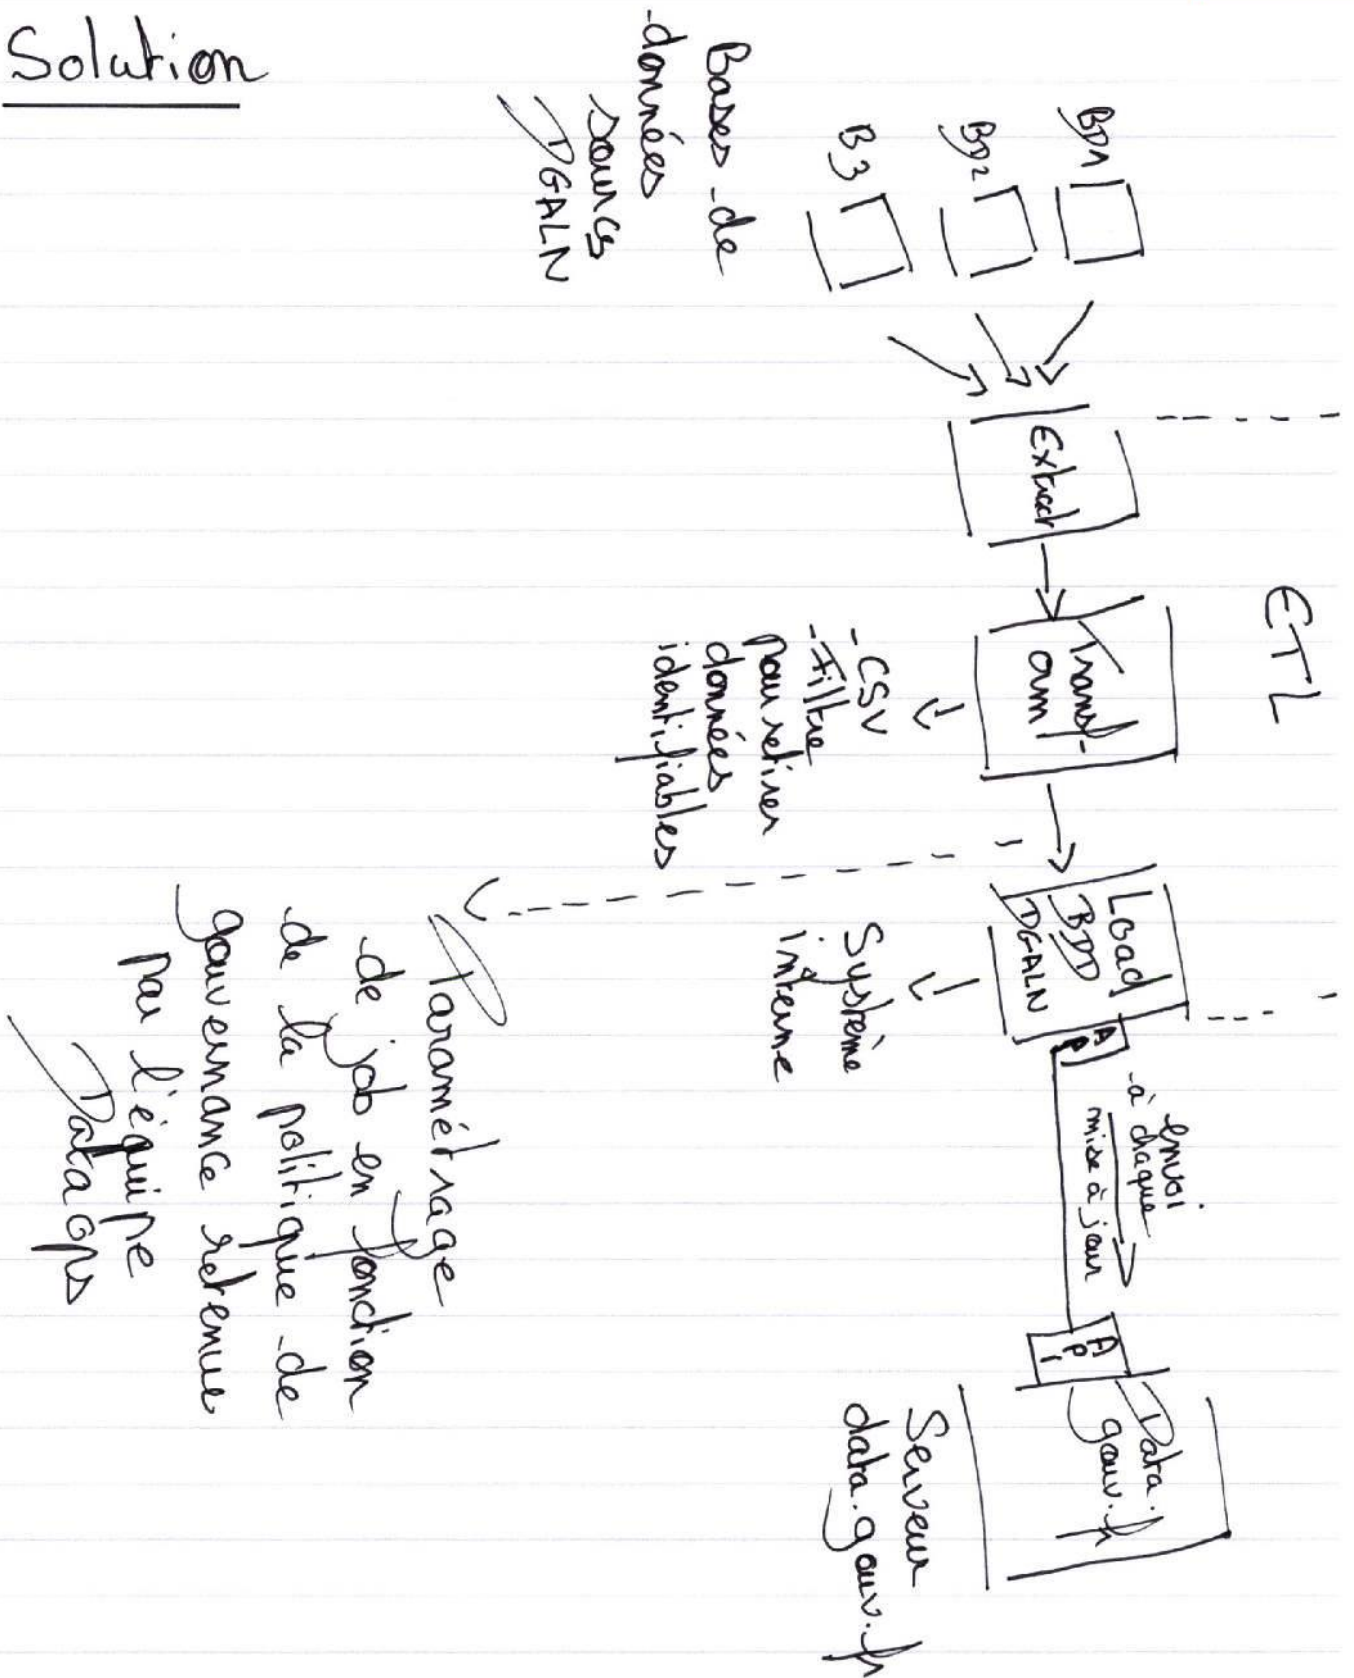 Solution
ETL
BD1
BD2
B3
Bases de
données
sources
DGALN
Extract
Transf-
orm
- CSV
- Filtre
pour retirer
données
identifiables
Load
BDD
DGALN
Système
interne
API
envoi
à chaque
mise à jour
API
Data.
gouv.fr
Serveur
data.gouv.fr
Paramétrage
de job en fonction
de la politique de
gouvernance retenue
par l'équipe
Data ops